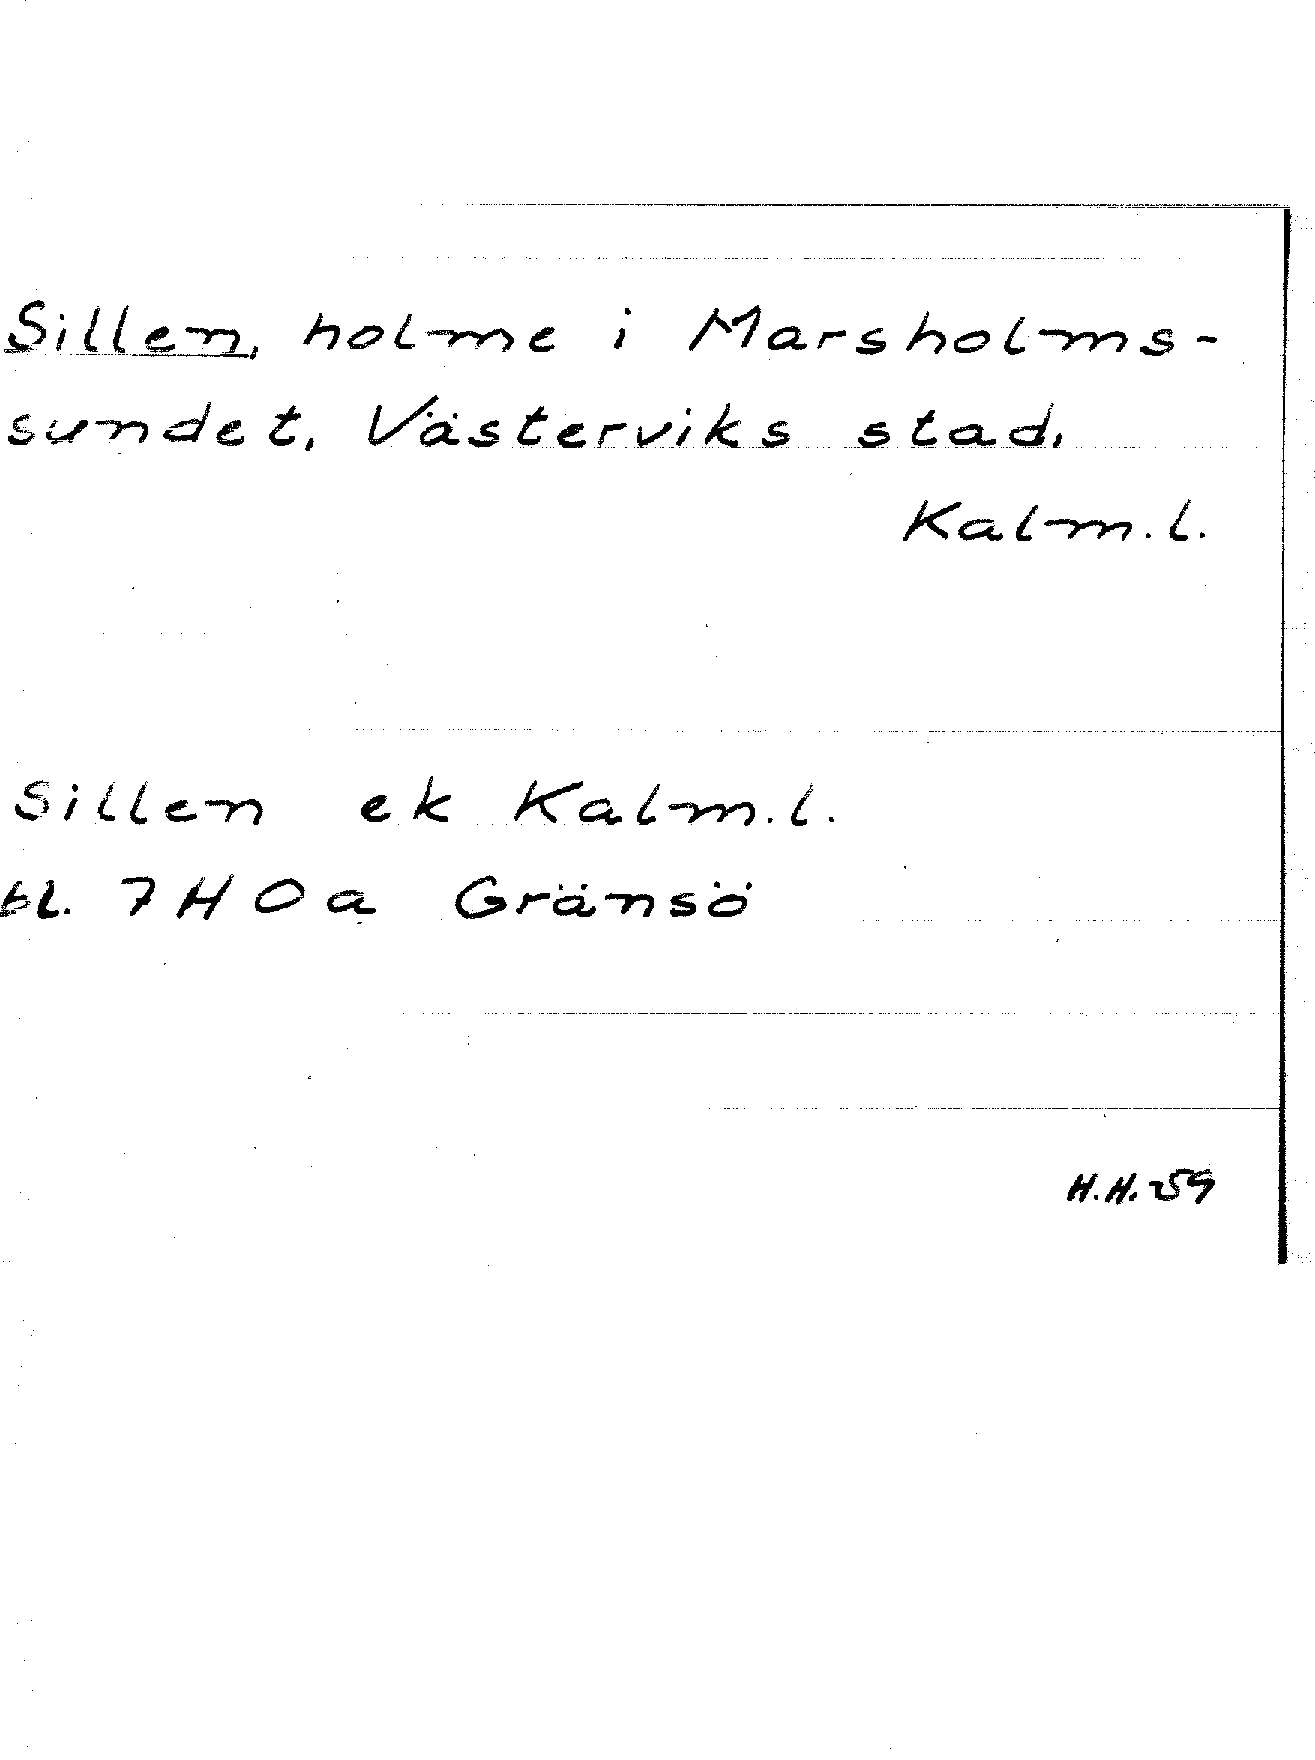 Sillen, holme i Marsholms-
sundet, Västerviks stad,
Kalm.l.
Sillen ek Kalm.l.
bl. 7 H 0 a Gränsö
H.H. 59